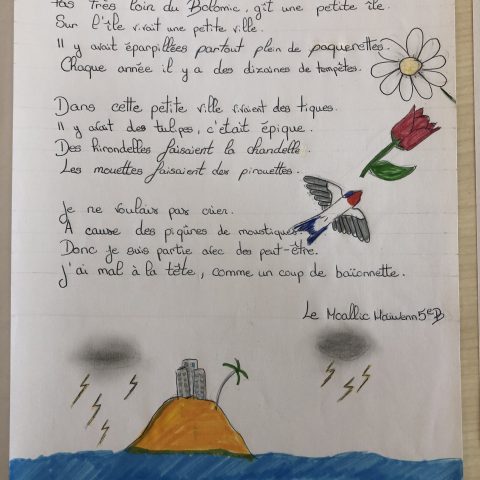 Pas très loin du Bolomic, gît une petite île.
Sur l'île vivait une petite ville.
Il y avait éparpillées partout plein de paquerettes.
Chaque année il y a des dizaines de tempêtes.
Dans cette petite ville vivaient des tiques.
Il y avait des tulipes, c'était épique.
Des hirondelles faisaient la chandelle.
Les mouettes faisaient des pirouettes.
Je ne voulais pas crier.
A cause des piqûres de moustiques.
Donc je suis partie avec des peut-être.
J'ai mal à la tête, comme un coup de baïonnette.
Le Moallic Maiwenn 5eB